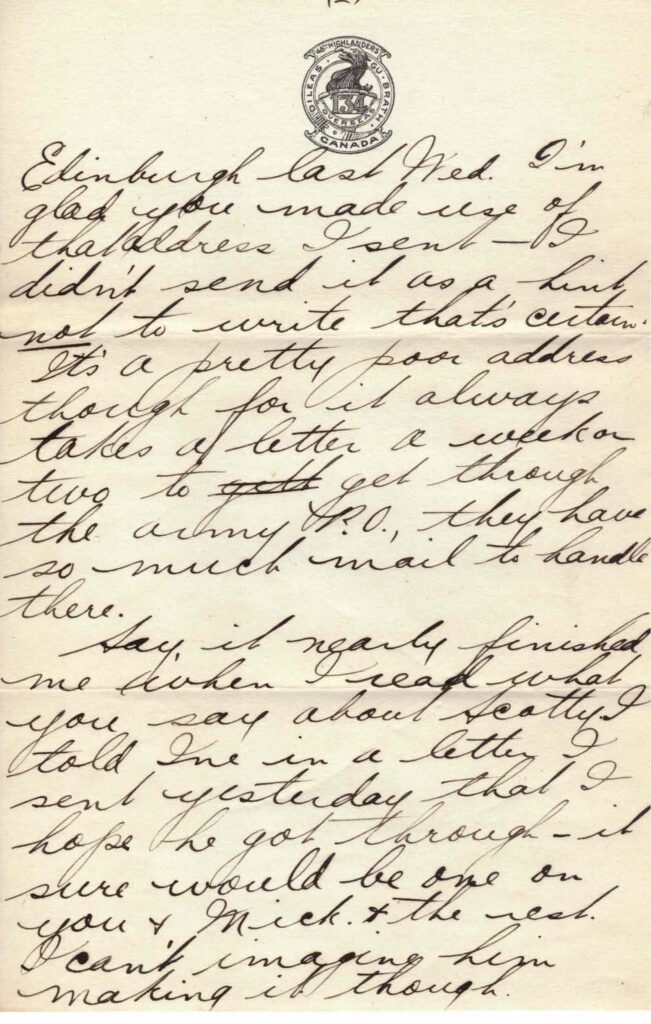 (2)
48TH HIGHLANDERS
DILEAS GU BRATH
134
OVERSEAS
CANADA
Edinburgh last Wed. I'm
glad you made use of
that address I sent — I
didn't send it as a hint
not to write that's certain.
It's a pretty poor address
though for it always
takes a letter a week or
two to gett get through
the army P.O., they have
so much mail to handle
there.
Say it nearly finished
me when I read what
you say about Scotty. I
told Ine in a letter I
sent yesterday that I
hope he got through – it
sure would be one on
you & Mick. & the rest.
I can't imagine him
making it though.